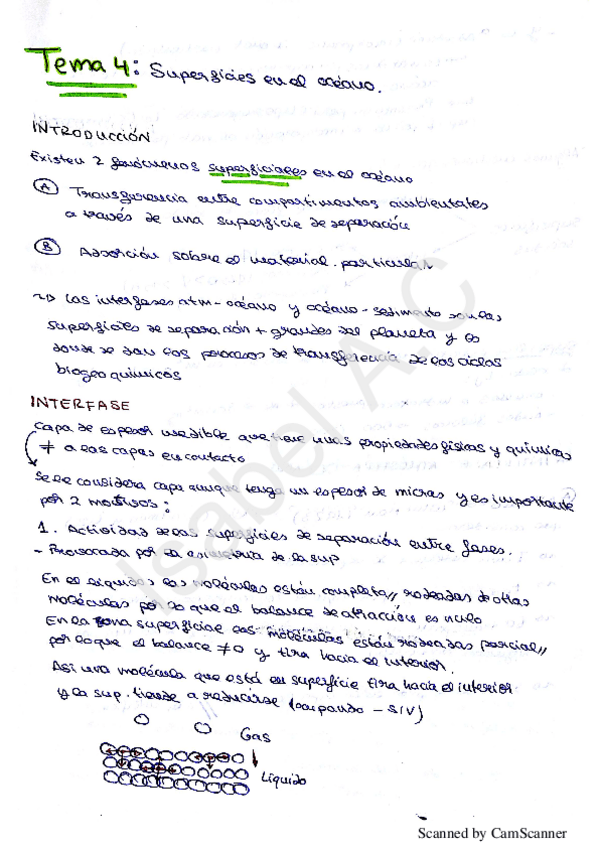 Tema 4: Superficies en el océano.
INTRODUCCIÓN
Existen 2 fenómenos superficiales en el océano
A Transferencia entre compartimentos ambientales
a través de una superficie de separación
B Adsorción sobre el material particular
Las interfases atm-océano y océano-sedimento son las
superficies de separación + grandes del planeta y es
donde se dan los procesos de transferencia de los ciclos
biogeoquímicos
INTERFASE
Capa de espesor medible que tiene unas propiedades físicas y químicas
≠ a las capas en contacto
Se le considera capa aunque tenga un espesor de micras y es importante
por 2 motivos:
1. Actividad de las superficies de separación entre fases.
- Provocada por la asimetría de la sup
En el líquidos las moléculas están completa// rodeadas de otras
moléculas por lo que el balance de atracción es nulo
En la zona superficial las moléculas están rodeadas parcial//
por lo que el balance ≠0 y tira hacia el interior.
Así una molécula que está en superficie tira hacia el interior
y la sup. tiende a reducirse ( - S/V)
Gas
Líquido
Isabel A.C
Scanned by CamScanner